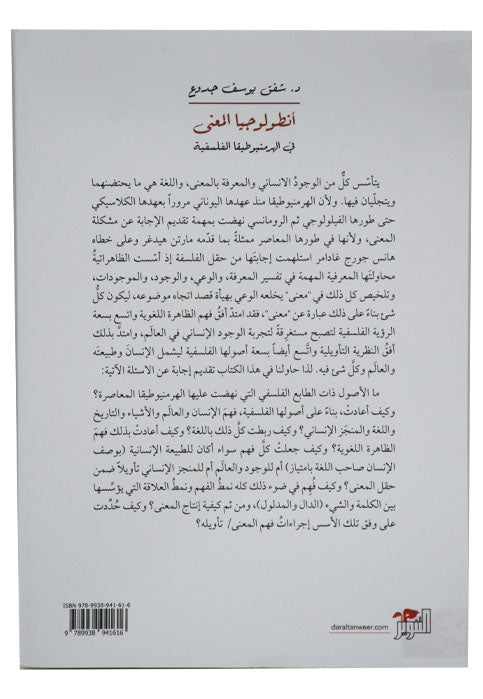 د. شفق يوسف جدوع
أنطولوجيا المعنى
في الهرمنيوطيقا الفلسفية
يتأسّس كلٌّ من الوجودُ الانساني والمعرفة بالمعنى، واللغة هي ما يحتضنهما
ويتجلّيان فيها. ولأن الهرمنيوطيقا منذ عهدها اليوناني مروراً بعهدها الكلاسيكي
حتى طورها الفيلولوجي ثم الرومانسي نهضت بمهمة تقديم الإجابة عن مشكلة
المعنى، ولأنها في طورها المعاصر ممثلةً بما قدّمه مارتن هيدغر وعلى خطاه
هانس جورج غادامر استلهمت إجابتَها من حقل الفلسفة إذ أسّست الظاهراتيةُ
محاولتَها المعرفية المهمة في تفسير المعرفة، والوعي، والوجود، والموجودات،
وتلخيص كل ذلك في "معنى" يخلعه الوعي بهيأة قصد اتجاه موضوعه، ليكون كلُّ
شئ بناءً على ذلك عبارة عن "معنى"، فقد امتدّ أفقُ فهم الظاهرة اللغوية واتسع بسعة
الرؤية الفلسفية لتصبح مستغرِقةً لتجربة الوجود الإنساني في العالَم، وامتدَّ بذلك
أفقُ النظرية التأويلية واتَّسع أيضاً بسعة أصولها الفلسفية ليشمل الإنسانَ وطبيعتَه
والعالَم وكلَّ شئ فيه. لذا حاولنا في هذا الكتاب تقديم إجابة عن الاسئلة الآتية:
ما الأصول ذات الطابع الفلسفي التي نهضت عليها الهرمنيوطيقا المعاصرة؟
وكيف أعادتْ، بناءً على أصولها الفلسفية، فهمَ الإنسان والعالَم والأشياء والتاريخ
واللغة والمنجَز الإنساني؟ وكيف ربطت كلَّ ذلك باللغة؟ وكيف أعادتْ بذلك فهمَ
الظاهرة اللغوية؟ وكيف جعلتْ كلَّ فهم سواء أكان للطبيعة الإنسانية (بوصف
الإنسان صاحب اللغة بامتياز) أم للوجود والعالَم أم للمنجز الإنساني تأويلاً ضمن
حقل المعنى؟ وكيف فُهِم في ضوء ذلك كله نمطُ الفهم ونمطُ العلاقة التي يؤسِّسها
بين الكلمة والشيء (الدال والمدلول)، ومن ثم كيفية إنتاج المعنى؟ وكيف حُدِّدت
على وفق تلك الأسس إجراءاتُ فهم المعنى/ تأويله؟
ISBN 978-9938-941-61-6
9 789938 941616
التنوير
daraltanweer.com